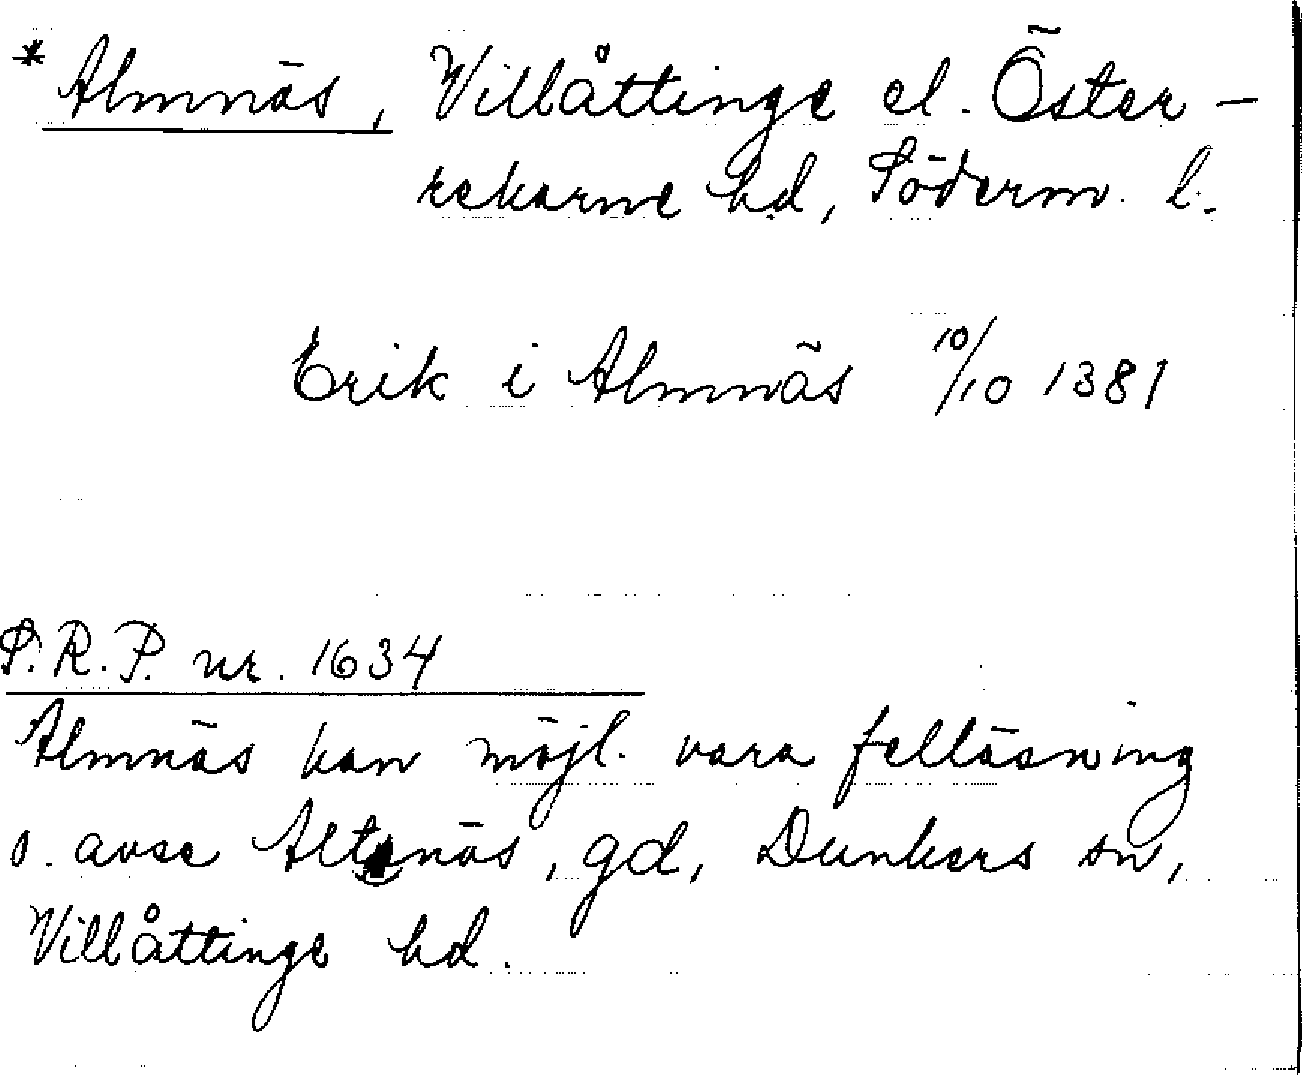 * Almnäs, Villåttinge el. Öster-
rekarne hd, Söderm. l.
Erik i Almnäs 10/10 1381
S.R.P. nr. 1634
Almnäs kan möjl. vara felläsning
o. avse Altenäs, gd, Dunkers sn,
Villåttinge hd.